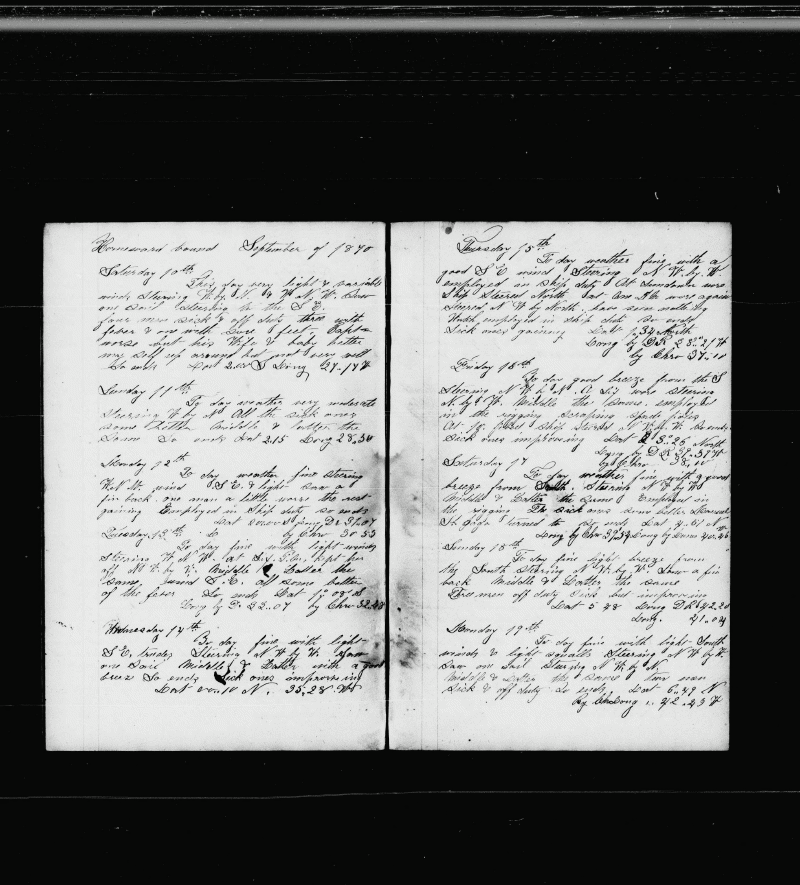 Homeward bound September of 1870
Saturday 10th
This day very light & variable
winds Steering W by N. & W N W. Saw
one Sail Steering to the S E
four men Sick & off duty three with
fever & one with Sore feet. Capt
worse but his Wife & baby better
So ends Lat S Long 27.17 W
Sunday 11th
To day weather very moderate
Steering W by N. All the Sick ones
some better Middle & latter the
Same So ends Lat 2.15 Long 28.34
Monday 12th
To day weather fine Steering
W N W. wind S. E. & light Saw a
fin back. one man a little worse the rest
gaining Employed in Ship duty So ends
Long DR 31.07
by Chro 30 53
Tuesday. 13th
To day fine with light winds
Steering W N W. at kept her
off N W. by W. Middle & Latter the
Same, wind S. E. all some better
of the fever So ends Lat 1°.08 S
Long by D. 33.07 by Chro 32.48
Wednesday 14th
To day fine with light
S E. trades Steering N W by W. Saw
one Sail Middle & Latter with a good
breeze So ends Sick ones improving
Lat 00.10 N. 35.28 W
Thursday 15th
To day weather fine with a
good S E wind Steering N W. by W
employed in Ship duty At Sundown wore
Ship Steered North, at One A M wore again
Steered N W by North. have seen nothing
Watch employed in Ship duty So ends
Sick ones gaining Lat 2.34 North
Long by DR 38°.21 W
by Chro 37.10
Friday 16th
To day good breeze from the S
Steering N W by N. A. Sig. wore Steering
N. by W. Middle the Same. employed
in the rigging Scraping Spade poles
Sick ones improving Lat 3°.26 North
Long by D R 38.37 W
by Chro 38.10
Saturday 17
To day weather fine with a good
breeze from South. Steering N W by W
Middle & Latter the Same Employed in
the rigging The Sick ones Some better
turned to So ends Lat 4.01 N
Long by Chro 39.39 Long by Luna 40.46
Sunday 18th
To day fine light breeze from
the South Steering N W. by W. Saw a fin
back Middle & Latter the Same
Three men off duty Sick but improving
Lat 5 48 Long DR 42.20
Long. 41.04
Monday 19th
To day fine with light South
winds & light squalls Steering N W by W
Saw one Sail Steering N W by N
Middle & Latter the Same two men
Sick & off duty So ends, Lat 6.49 N
By Chro Long 42.43 W